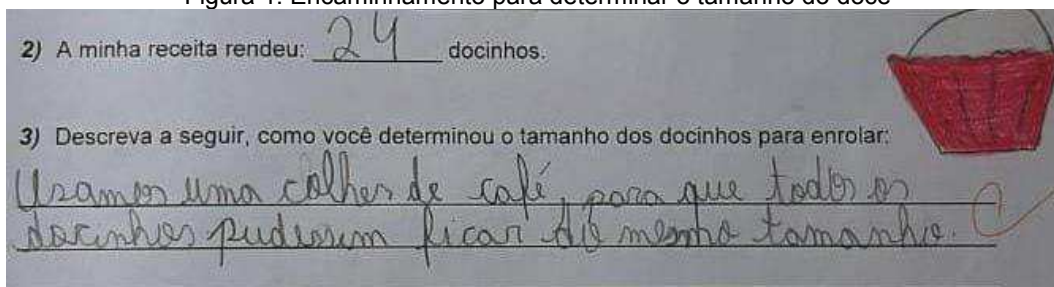 Figura 1: Encaminhamento para determinar o tamanho do doce
2) A minha receita rendeu: 24 docinhos.
3) Descreva a seguir, como você determinou o tamanho dos docinhos para enrolar:
Usamos uma colher de café, para que todos os
docinhos pudessem ficar do mesmo tamanho. C